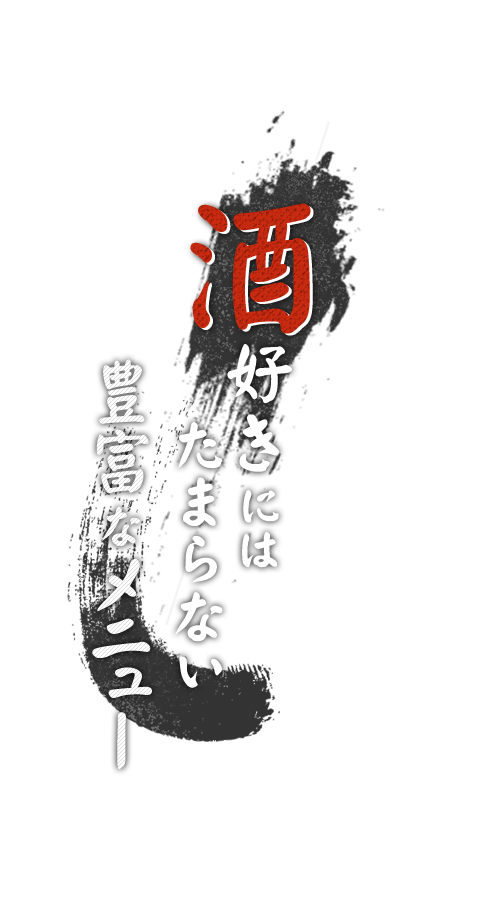 酒好きには
たまらない
豊富なメニュー